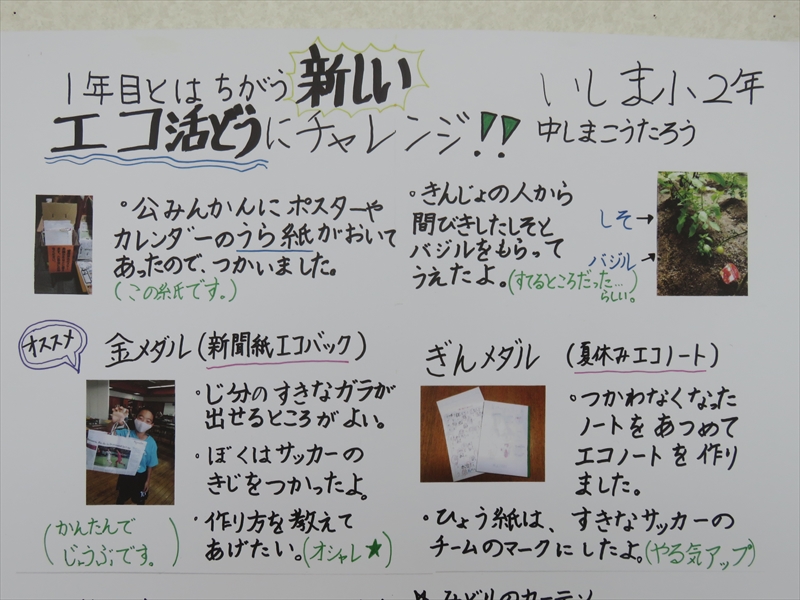 1年目とはちがう新しい
エコ活どうにチャレンジ!!
いしま小2年
中しまこうたろう
・公みんかんにポスターや
カレンダーのうら紙がおいて
あったので、つかいました。
(この紙です。)
・きんじょの人から
間びきしたしそと
バジルをもらって
うえたよ。(すてるところだった…らしい。)
しそ→
バジル→
オススメ
金メダル(新聞紙エコバック)
・じ分のすきなガラが
出せるところがよい。
・ぼくはサッカーの
きじをつかったよ。
・作り方を教えて
あげたい。(オシャレ★)
(かんたんで
じょうぶです。)
ぎんメダル(夏休みエコノート)
・つかわなくなった
ノートをあつめて
エコノートを作り
ました。
・ひょう紙は、すきなサッカーの
チームのマークにしたよ。(やる気アップ)
みどりのカーテン